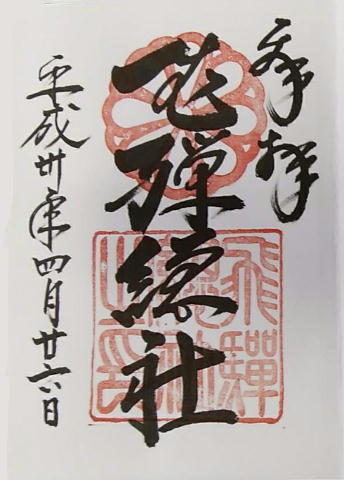 奉拝
飛騨総社
飛騨
總社
之印
平成卅年四月廿六日